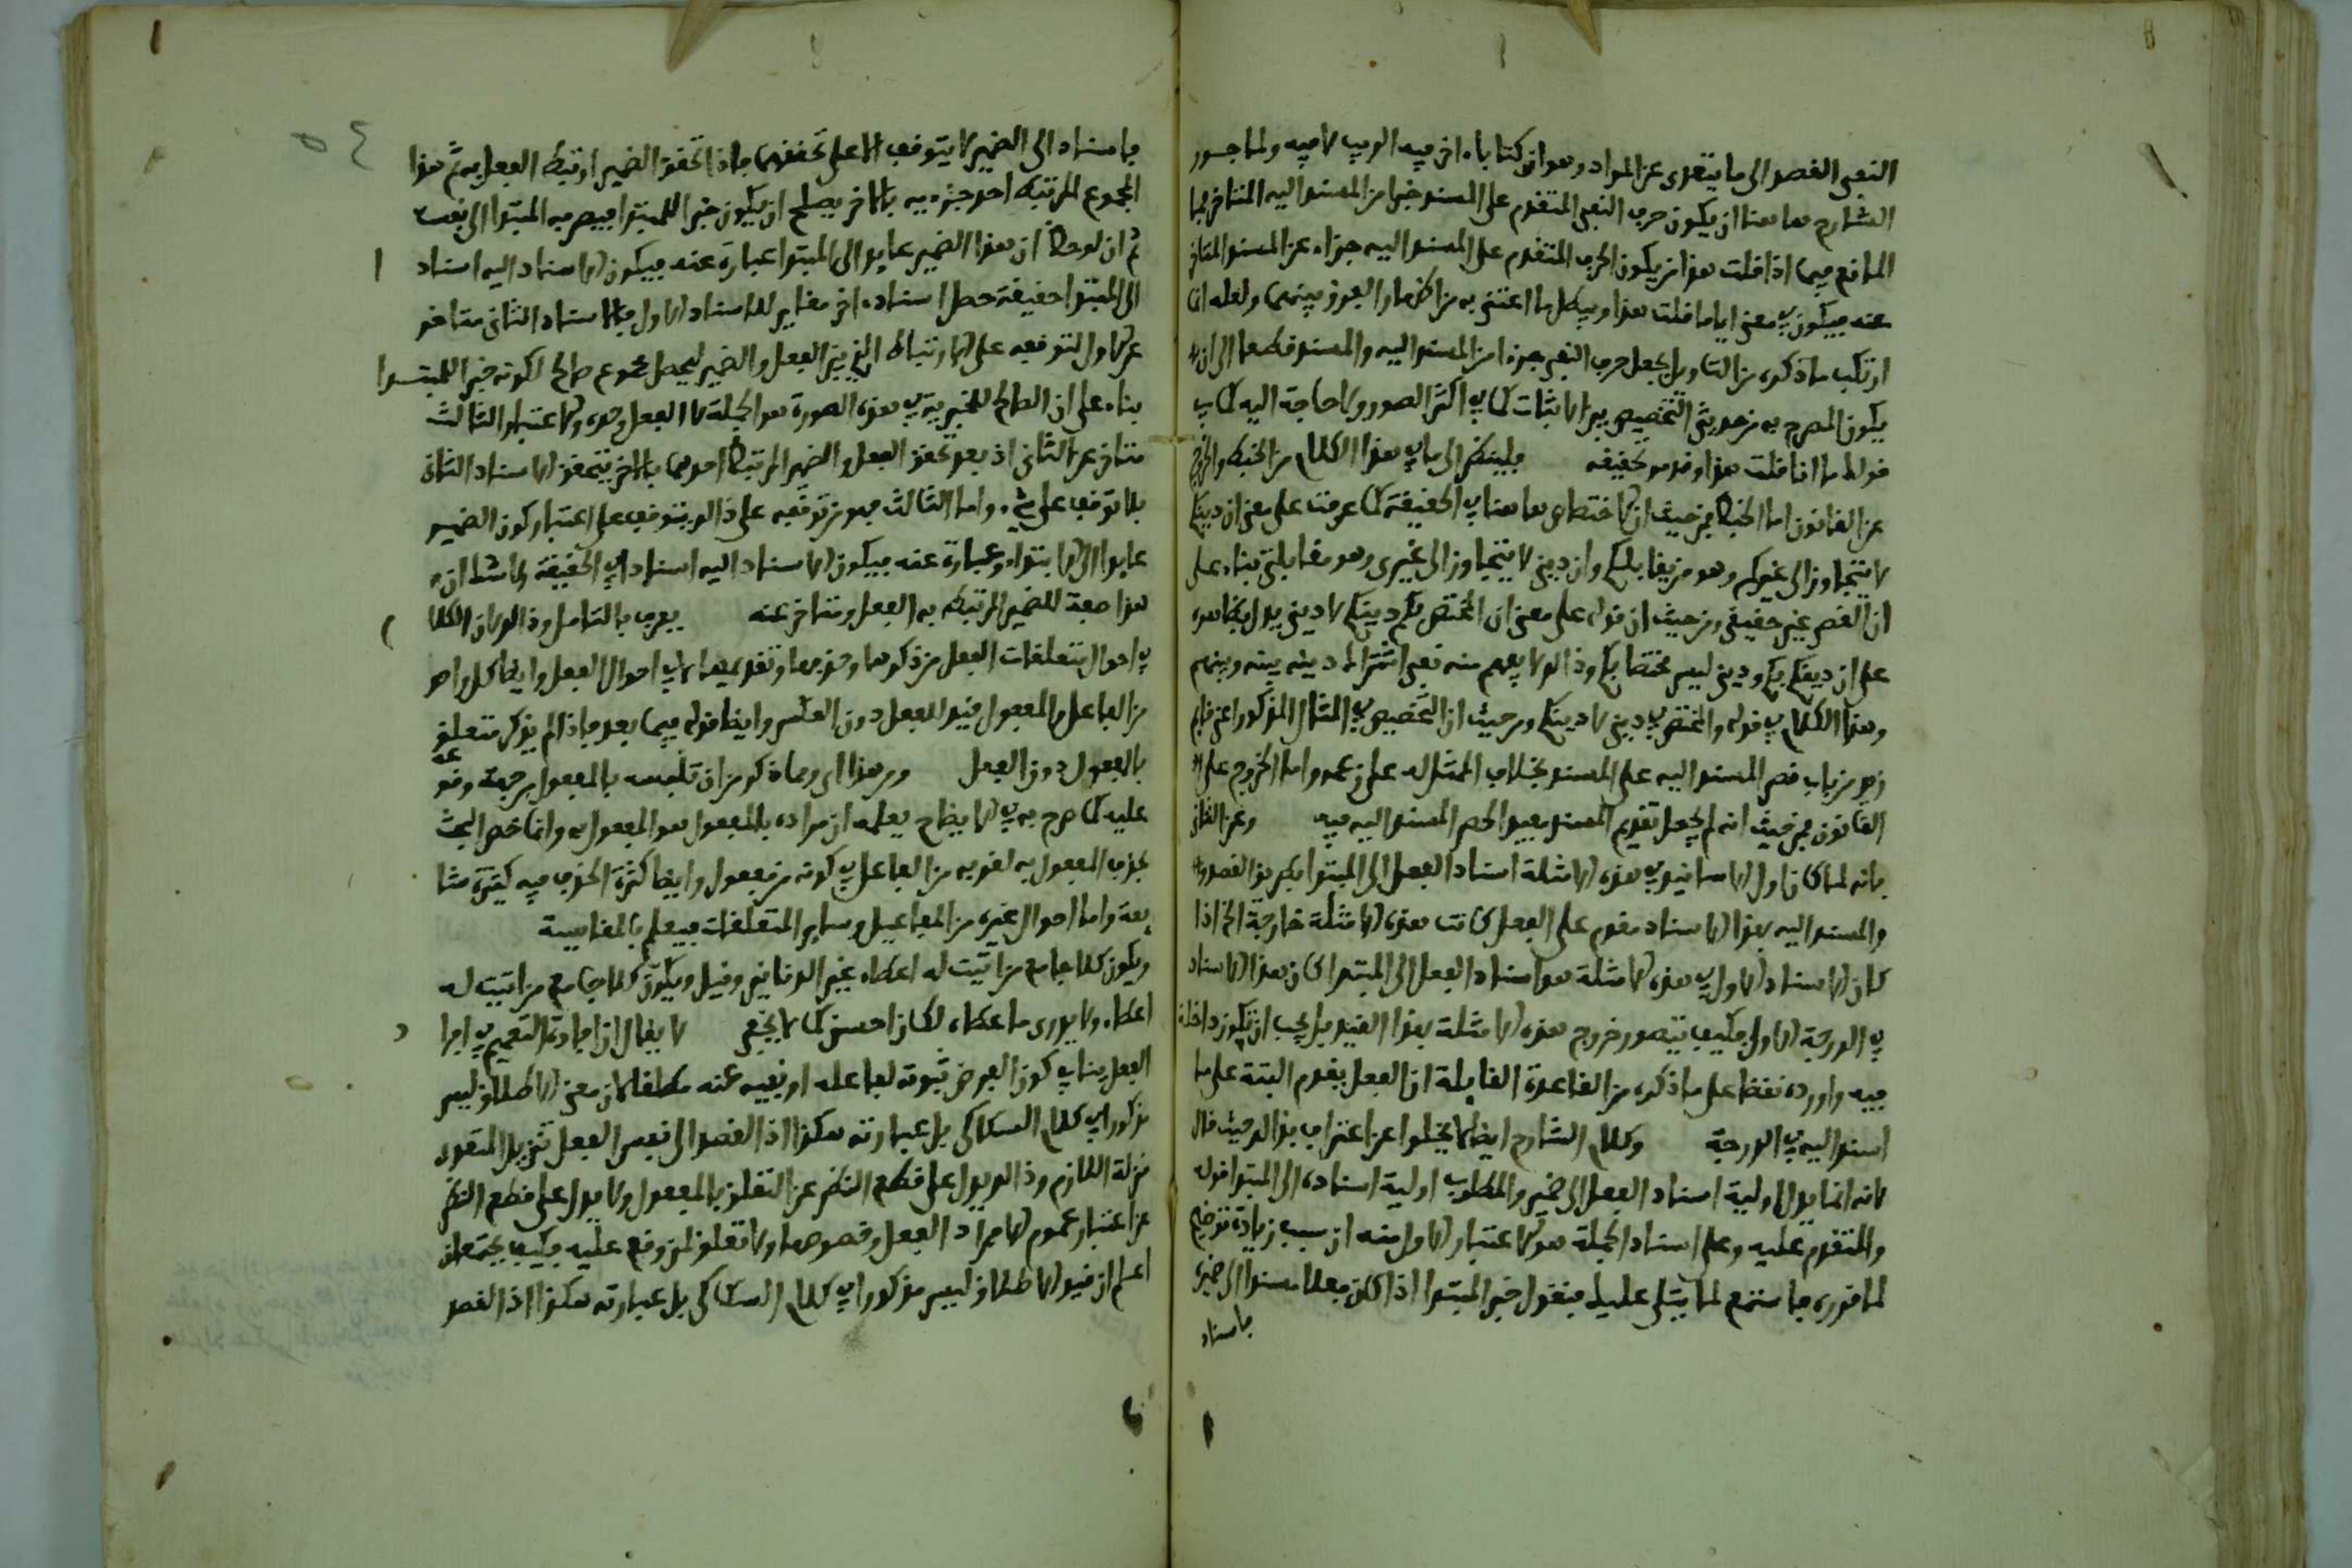 النفي القصد الى ما يتعدى عن المراد وهو ان كتابا اخر فيه الريب لا فيه ولما جوز
الشارح هاهنا ان يكون حرف النفي المتقدم على المسند خبرا من المسند اليه المتاخر فما
المانع فيما اذا قلت هذا من يكون الحرف المتقدم على المسند اليه جزاء عن المسند المتاخر
عنه فيكون في معنى اياما قلت هذا ويبطل ما اعتنى به من اظهار الفرق بينهما ولعله انما
ارتكب ما ذكره من التاويل بجعل حرف النفي جزءا من المسند اليه والمسند قطعا الى ان
يكون المصرح به من حديث التخصيص هو الاثبات كما في اكثر الصور ولا حاجة اليه كما في
قولك ما انا قلت هذا وقد مر تحقيقه فلينظر الى ما في هذا الكلام من الخبط والخروج
عن القانون اما الخبط فمن حيث ان الاختصاص هاهنا في الحقيقة كما عرفت على معنى ان دينكم
لا يتجاوز الى غيركم وهو من يقابلكم وان ديني لا يتجاوز الى غيري وهو مقابلتي بناء على
ان القصر غير حقيقي ومن حيث ان قوله على معنى ان المختص بكم دينكم لا ديني يدل بظاهره
على ان دينكم بكم وديني ليس مختصا بكم وذالك لا يفهم منه نفي اشتراك دينه بينه وبينهم
وهذا الكلام في قوله والمختص بي ديني لا دينكم ومن حيث ان التخصيص في المثال المذكور اعني قايم
زيد من باب قصر المسند اليه على المسند بخلاف الممثل له على زعمه واما الخروج على
القانون فمن حيث انه لم يجعل تقديم المسند يفيد الحصر المسند اليه فيه وعن الثاني
بانه لما كان اول الاسانيد في هذه الامثلة اسناد الفعل الى المبتدا بطريق القصد
والمسند اليه بهذا الاسناد مقدم على الفعل كانت هذه الامثلة خارجة الخ اذا
كان الاسناد الاول في هذه الامثلة هو اسناد الفعل الى المبتدا كان هذا الاسناد
في الدرجة الاولى فكيف يتصور خروج هذه الامثلة بهذا القيد بل يجب ان تكون داخلة
فيه وارده نقضا على ما ذكره من القاعدة القايلة ان الفعل يقدم البتة على ما
اسند اليه في الدرجة وكلام الشارح ايضا لا يخلوا عن اعتراف بذالك حيث قال
لانه انما يدل اولية اسناد الفعل الى ضمير والمطلوب اولية اسناده الى المبتدا قوله
والمتقدم عليه وعلى اسناد الجملة هو الاعتبار الاول منه ان سبب زيادة توضيح
لما قرره فاستمع لما يتلى عليك فنقول خبر المبتدا اذا كان فعلا مسندا الى ضميره
فاسناد
٥٤
فاسناد الى الضمير لا يتوقف الا على تحققهما فاذا تحقق الضمير ارتبط الفعل به ثم هذا
المجموع المرتبط احد جزءيه بالاخر يصلح ان يكون خبرا للمبتدا فيصرفه المبتدا الى نفسه
ثم ان لوحظ ان هذا الضمير عايد الى المبتدا عبارة عنه فيكون الاسناد اليه اسناد ا
الى المبتدا حقيقة حصل اسناده اخر مغاير للاسناد الاول فالاسناد الثاني متاخر
عن الاول لتوقفه على الارتباط الذي بين الفعل والضمير ليحصل مجموع صالح لكونه خبرا للمبتدا
بناء على ان الصالح للخبرية في هذه الصورة هو الجملة لا الفعل وحده والاعتبار الثالث
متاخر عن الثاني اذ بعد تحقق الفعل والضمير المرتبط احدهما بالاخر يتحقق الاسناد الثاني
بلا توقف على شيء واما الثالث فبعد من توقفه على ذالك يتوقف على اعتبار كون الضمير
عايدا الى الابتداء وعبارة عنه فيكون الاسناد اليه اسنادا في الحقيقة ولا شك ان
هذا صفة للضمير المرتبط به الفعل ومتاخر عنه يعرف بالتامل وذالك لان الكلام
في احوال متعلقات الفعل من ذكرها وحذفها وتقديمها لا في احوال الفعل وايضا كل واحد
من الفاعل والمفعول قيد للفعل دون العكس وايضا قوله فيما بعد فاذا لم يذكر متعلق
بالمفعول دون الفعل ومن هذا اي ومما ذكر من ان تلبسه بالمفعول من جهة وقوعه
عليه كما صرح به في الايضاح يعلم ان مراده بالمفعول هو المفعول به وانما خص البحث
بحذف المفعول به لقربه من الفاعل في كونه من فعول وايضا كثرة الحذف فيه كثيرة مشا
يعة واما احوال غيره من المفاعيل وساير المتعلقات فيعلم بالمقايسة
ويكون كلاما مع من اثبت له اعطاء غير الدنانير وقيل ويكون كلاما مع من اثبت له
اعطاء ولا يدري ما اعطاه لكان احسن كما لا يخفى لا يقال ان افادة التعميم في افرا د
الفعل ينافي كون الغرض ثبوته لفاعله او نفيه عنه مطلقا لان معنى الاطلاق ليس
مذكورا في كلام السكاكي بل عبارته هكذا اذ القصد الى نفس الفعل تنزيل المتعدي
منزلة اللازم وذالك يدل على قطع النظر عن التعلق بالمفعول ولا يدل على قطع النظر
عن اعتبار عموم افراد الفعل وخصوصها ولا تعلق لمن وقع عليه فكيف يجتمعان
اعلم ان قيد الاطلاق ليس مذكورا في كلام السكاكي بل عبارته هكذا اذ القصد